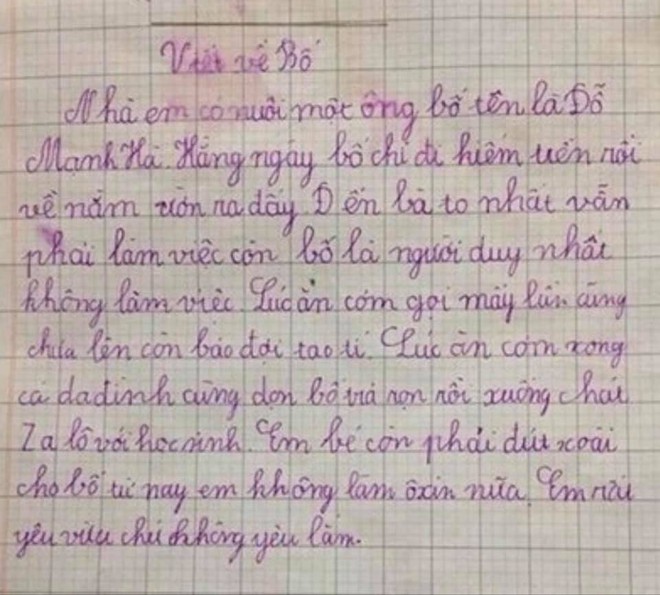 Viết về Bố
Nhà em có nuôi một ông bố tên là Đỗ
Mạnh Hà. Hằng ngày bố chỉ đi kiếm tiền rồi
về nằm ườn ra đấy. Đến bà to nhất vẫn
phải làm việc còn bố là người duy nhất
không làm việc. Lúc ăn cơm gọi mấy lần cũng
chưa lên còn bảo đợi tao tí. Lúc ăn cơm xong
cả da dình cùng dọn bố trả rọn rồi xuống chát
Za lô với học sinh. Em bé còn phải đút xoài
cho bố từ nay em không làm ôxin nữa. Em rất
yêu vừa chứ không yêu lắm.